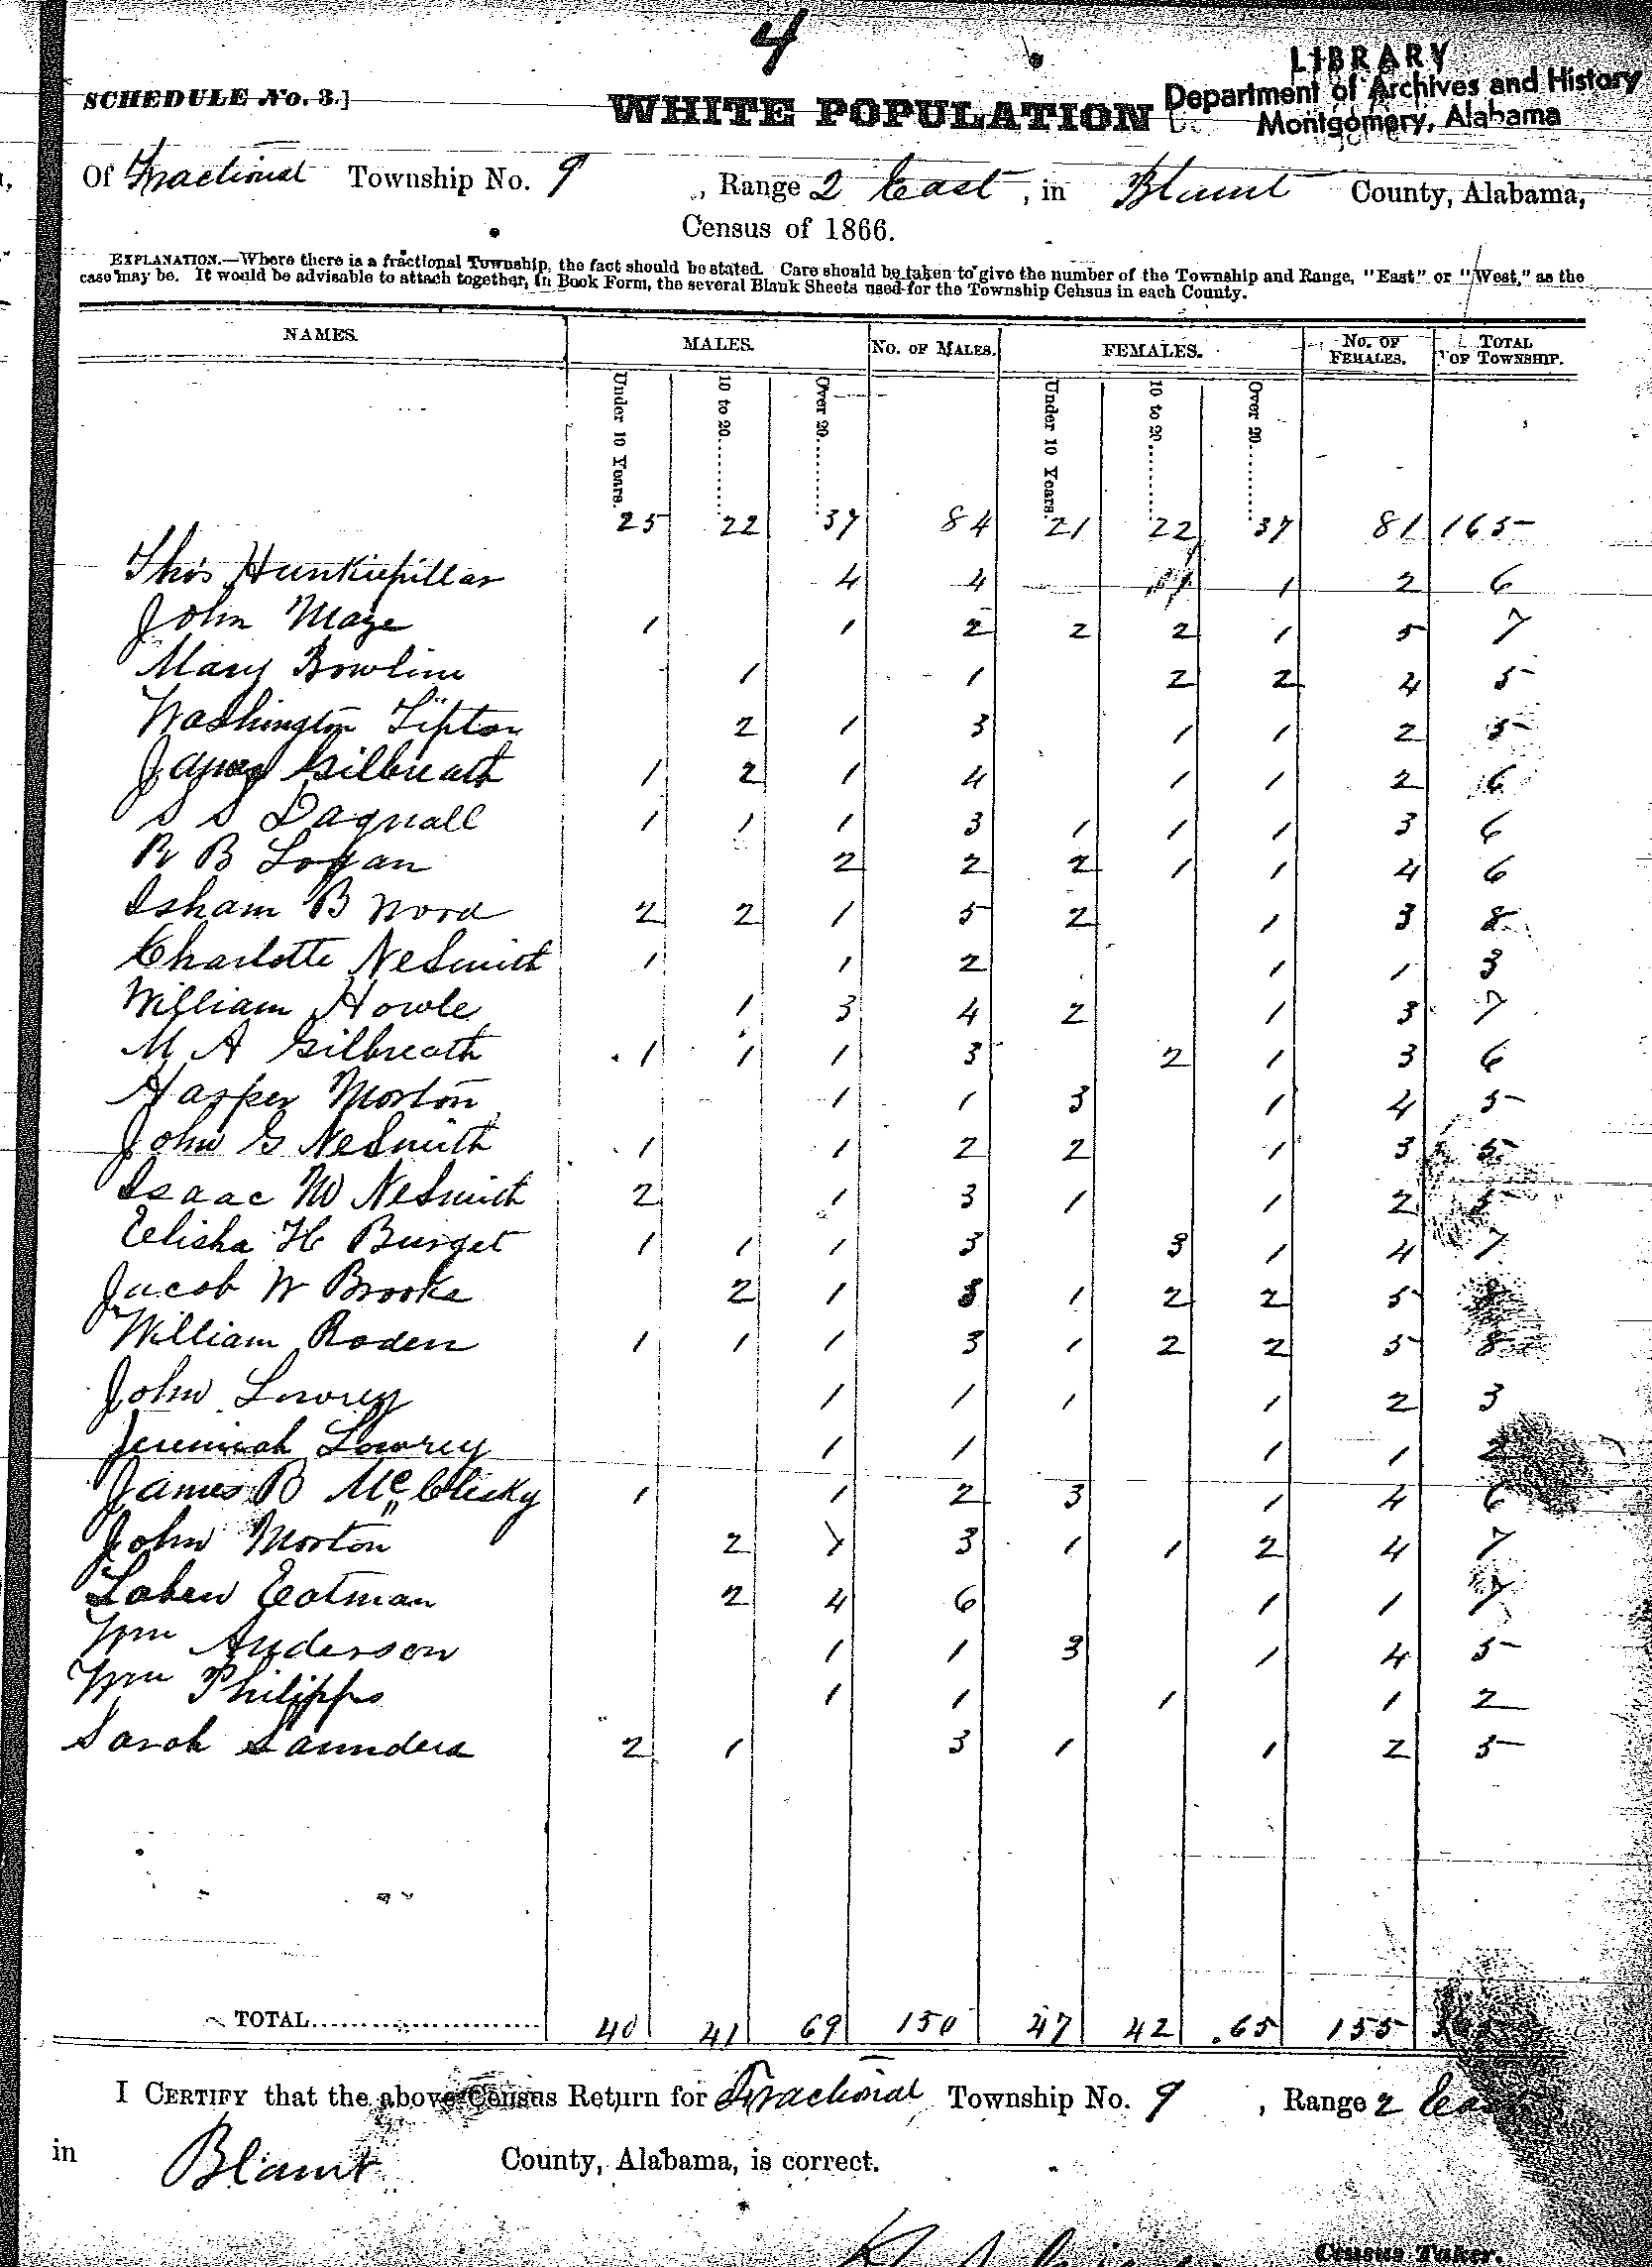 4
LIBRARY
Department of Archives and History
Montgomery, Alabama
SCHEDULE No. 3.]
WHITE POPULATION
Of Fractional Township No. 9, Range 2 East, in Blount County, Alabama,
Census of 1866.
EXPLANATION.—Where there is a fractional Township, the fact should be stated. Care should be taken to give the number of the Township and Range, "East" or "West," as the
case may be. It would be advisable to attach together, in Book Form, the several Blank Sheets used for the Township Census in each County.
NAMES. MALES. No. OF MALES. FEMALES. No. OF FEMALES. TOTAL OF TOWNSHIP.
Under 10 Years. 10 to 20 Over 20 Under 10 Years. 10 to 20 Over 20
25 22 37 84 21 22 37 81 165
Thos Hunkiepillar 4 4 1 1 2 6
John Maze 1 1 2 2 2 1 5 7
Mary Bowlin 1 1 2 2 4 5
Washington Tipton 2 1 3 1 1 2 5
James Gilbreath 1 2 1 4 1 1 2 6
S S Dagnall 1 1 1 3 1 1 1 3 6
R B Logan 2 2 2 1 1 4 6
Isham B Wood 2 2 1 5 2 1 3 8
Charlotte NeSmith 1 1 2 1 1 3
William Howle 1 3 4 2 1 3 7
M A Gilbreath 1 1 1 3 2 1 3 6
Harper Morton 1 1 3 1 4 5
John G NeSmith 1 1 2 2 1 3 5
Isaac W NeSmith 2 1 3 1 1 2 5
Elisha H Burget 1 1 1 3 3 1 4 7
Jacob W Brooks 2 1 3 1 2 2 5 8
William Roden 1 1 1 3 1 2 2 5 8
John Lowrey 1 1 1 1 2 3
Jeremiah Lowrey 1 1 1 1 2
James B McClisky 1 1 2 3 1 4 6
John Morton 2 1 3 1 1 2 4 7
Eatman 2 4 6 1 1 7
Wm Anderson 1 1 3 1 4 5
Wm Philipps 1 1 1 1 2
Sarah Saunders 2 1 3 1 1 2 5
TOTAL 40 41 69 150 47 42 65 155
I CERTIFY that the above Census Return for Fractional Township No. 9, Range 2 East
in Blount County, Alabama, is correct.
Census Taker.